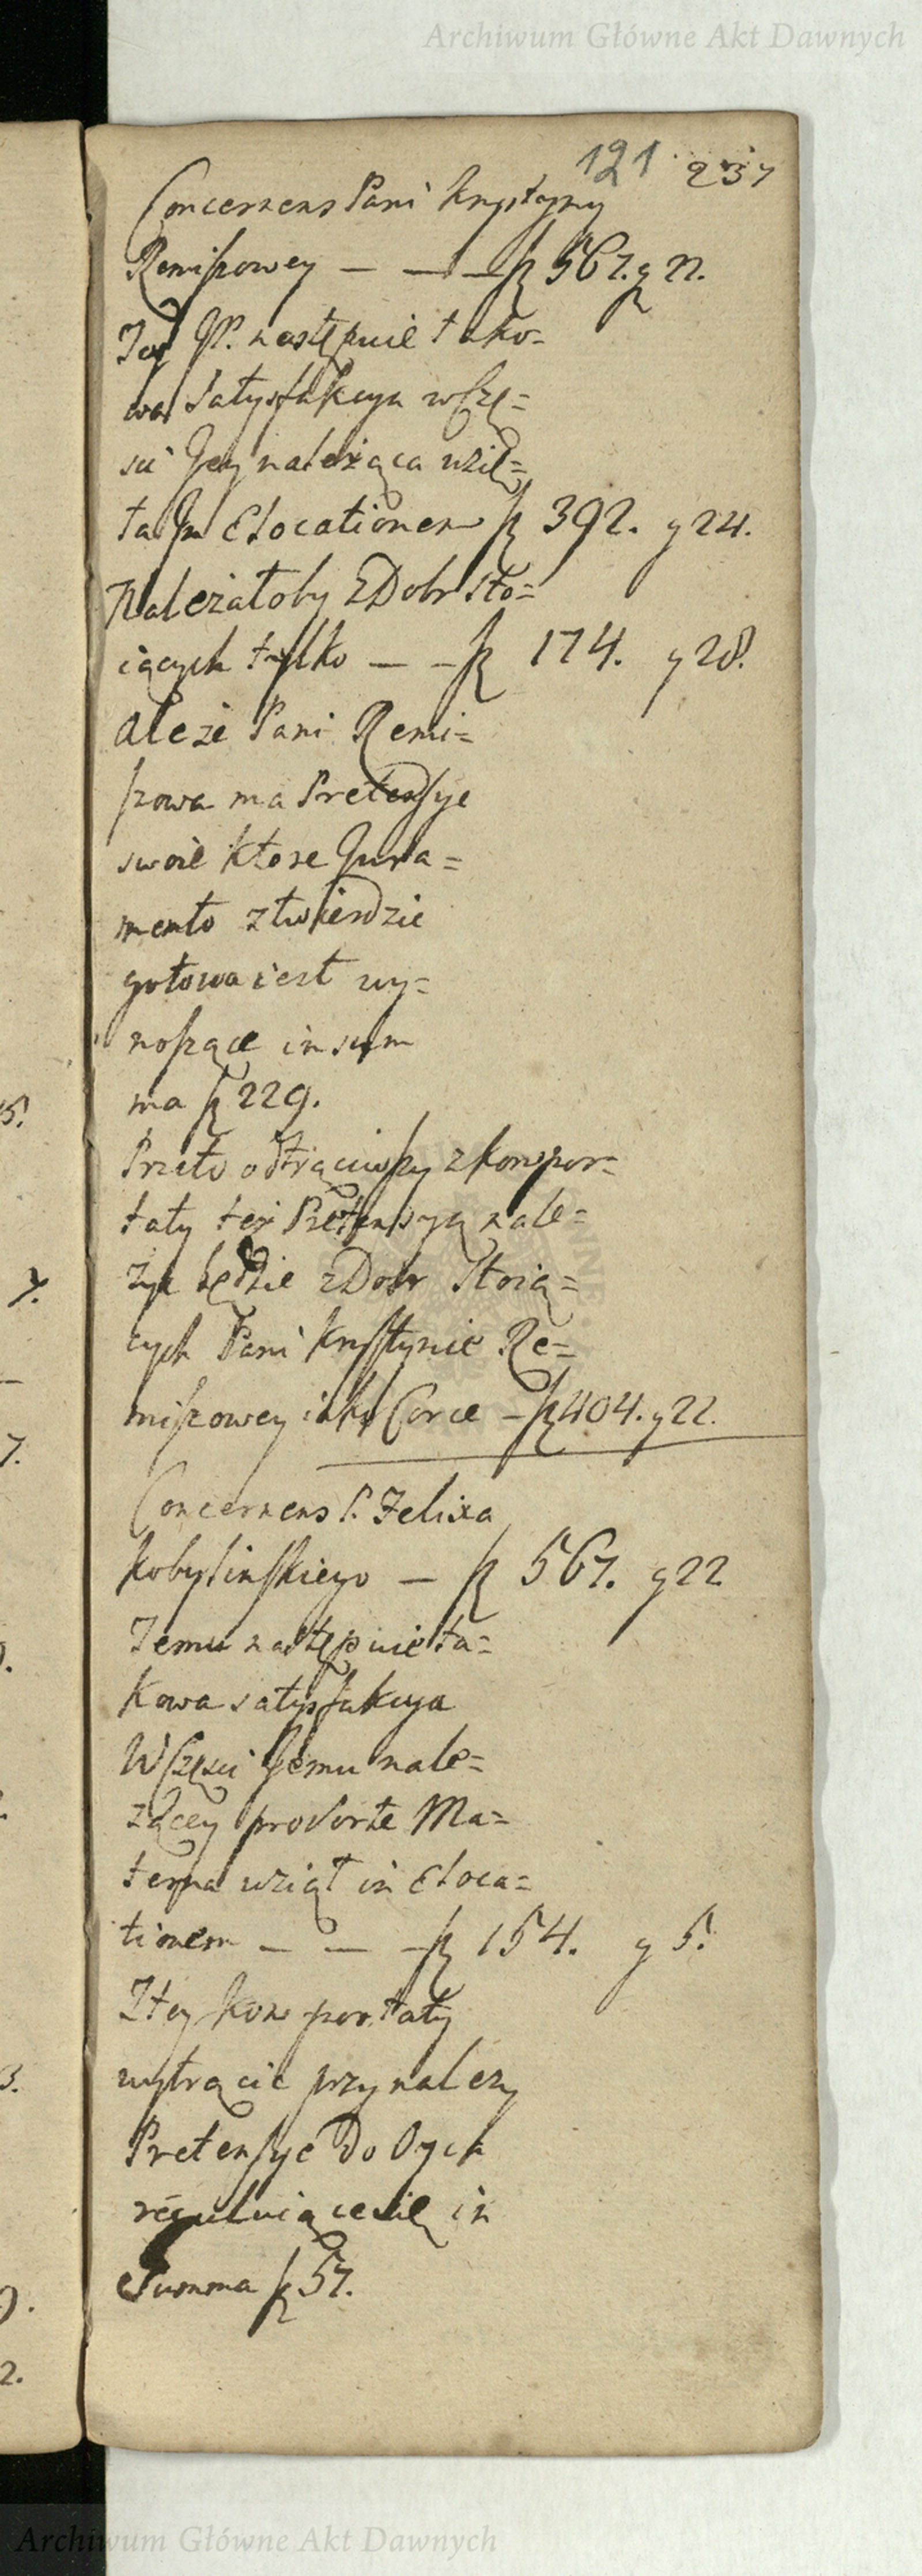 Archiwum Główne Akt Dawnych
121 237
Concernens Pani Krystyny
Remiszowey — — — fl 567. g 22.
Tey JP. następuie tako=
wa Satysfakcya w Czę=
sci Jey należąca wzię=
ta Jn Elocationem fl 392. g 24.
Należałoby z Dobr sto=
iących tylko — — fl 174. g 28.
ale że Pani Remi=
szowa ma Pretensye
swoie ktore Jura=
mento ztwierdzic
gotowa iest wy=
noszące in sum
ma fl 229.
Przeto odtrąciwszy z kompor=
taty tęż Pretensyą nale=
życ będzie z Dobr Stoią=
cych Pani Krystynie Re=
miszowey iako Corce — fl 404. g 22.
Concernens P. Felixa
Kobylinskiego — fl 567. g 22
Temu następuie ta=
kowa satysfakcya
W Częsci Jemu nale=
żącey pro Sorte Ma=
terna wziął in Eloca=
tionem — — — fl 154. g 5.
Z tey komportaty
wytrącic przynależy
Pretensye do Oyca
reguluiące się in
Summa fl 57.
Archiwum Główne Akt Dawnych